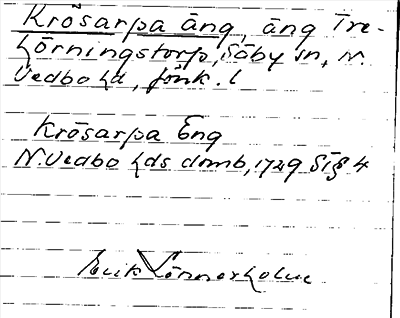 Krösarpa äng, äng Tre-
hörningstorp, Säby sn, N.
Vedbo hd, Jönk. l
Krösarpa Eng
N. Vedbo hds domb, 1729 § 4
Erik Lönnerholm